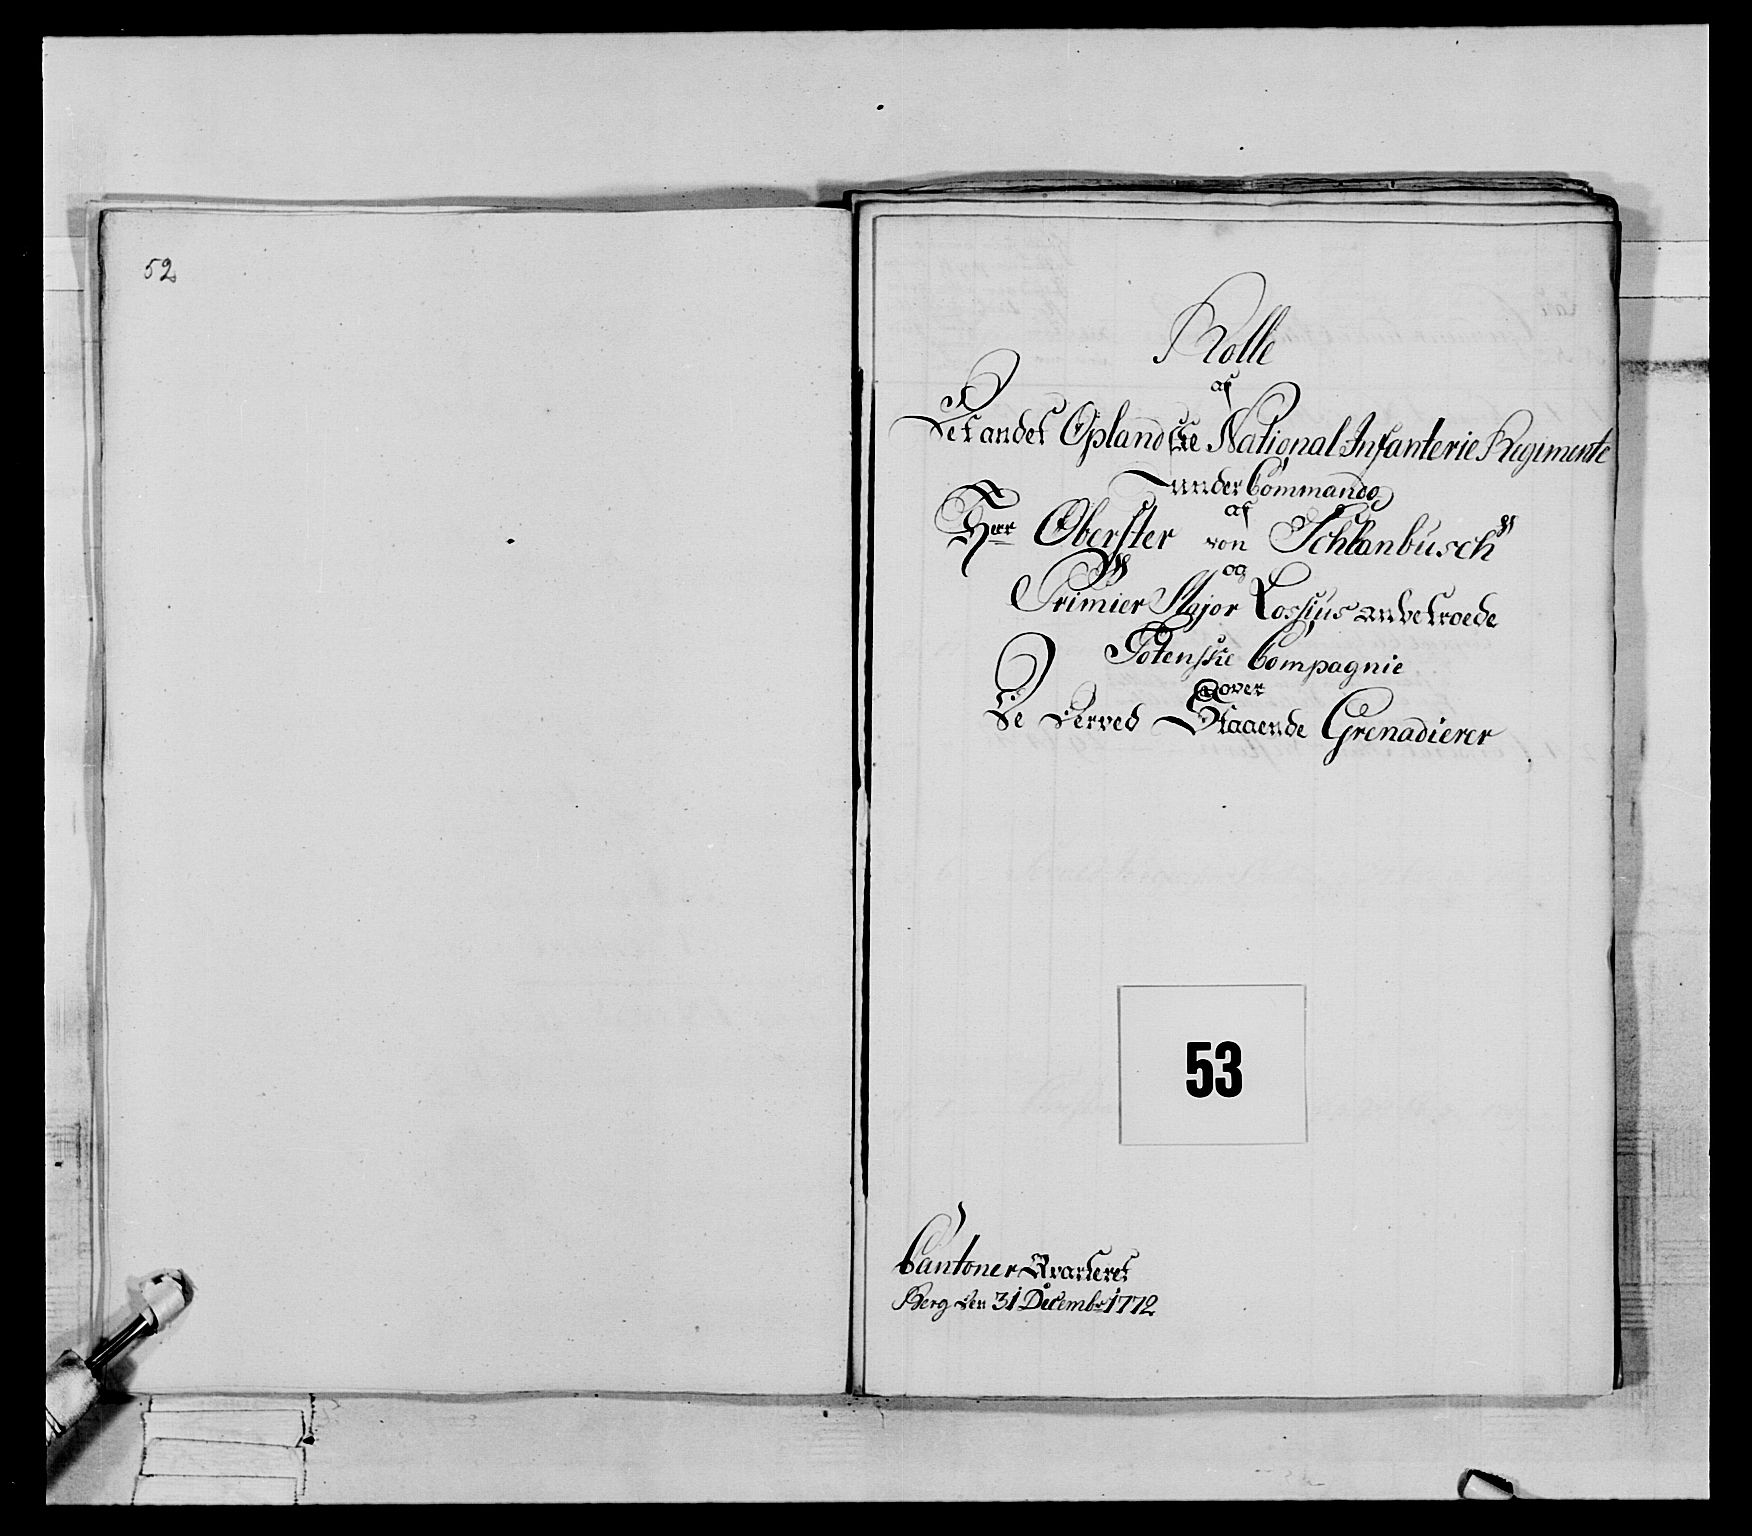 52
Rolle
af
Det andet Oplandske National Infanterie Regimente
under Commando
af
Herr Oberster von Schlanbusch
og
Primier Major Lossius anbetroede
Totenske Compagnie
over
De derved Staaende Grenadierer
53
Cantoner Qvarteret
Berg den 31 Decembr 1772